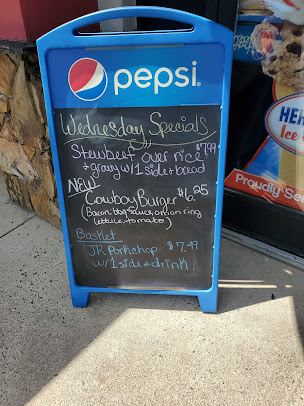 pepsi
Wednesday Specials
Stewbeef over rice $7.99
& gravy w/1 side + bread
NEW
Cowboy Burger $6.25
(Bacon, bbq sauce, onion ring
lettuce, tomato)
Basket
JR Porkchop $7.49
w/1 side & drink
HER
Ice
Proudly Se